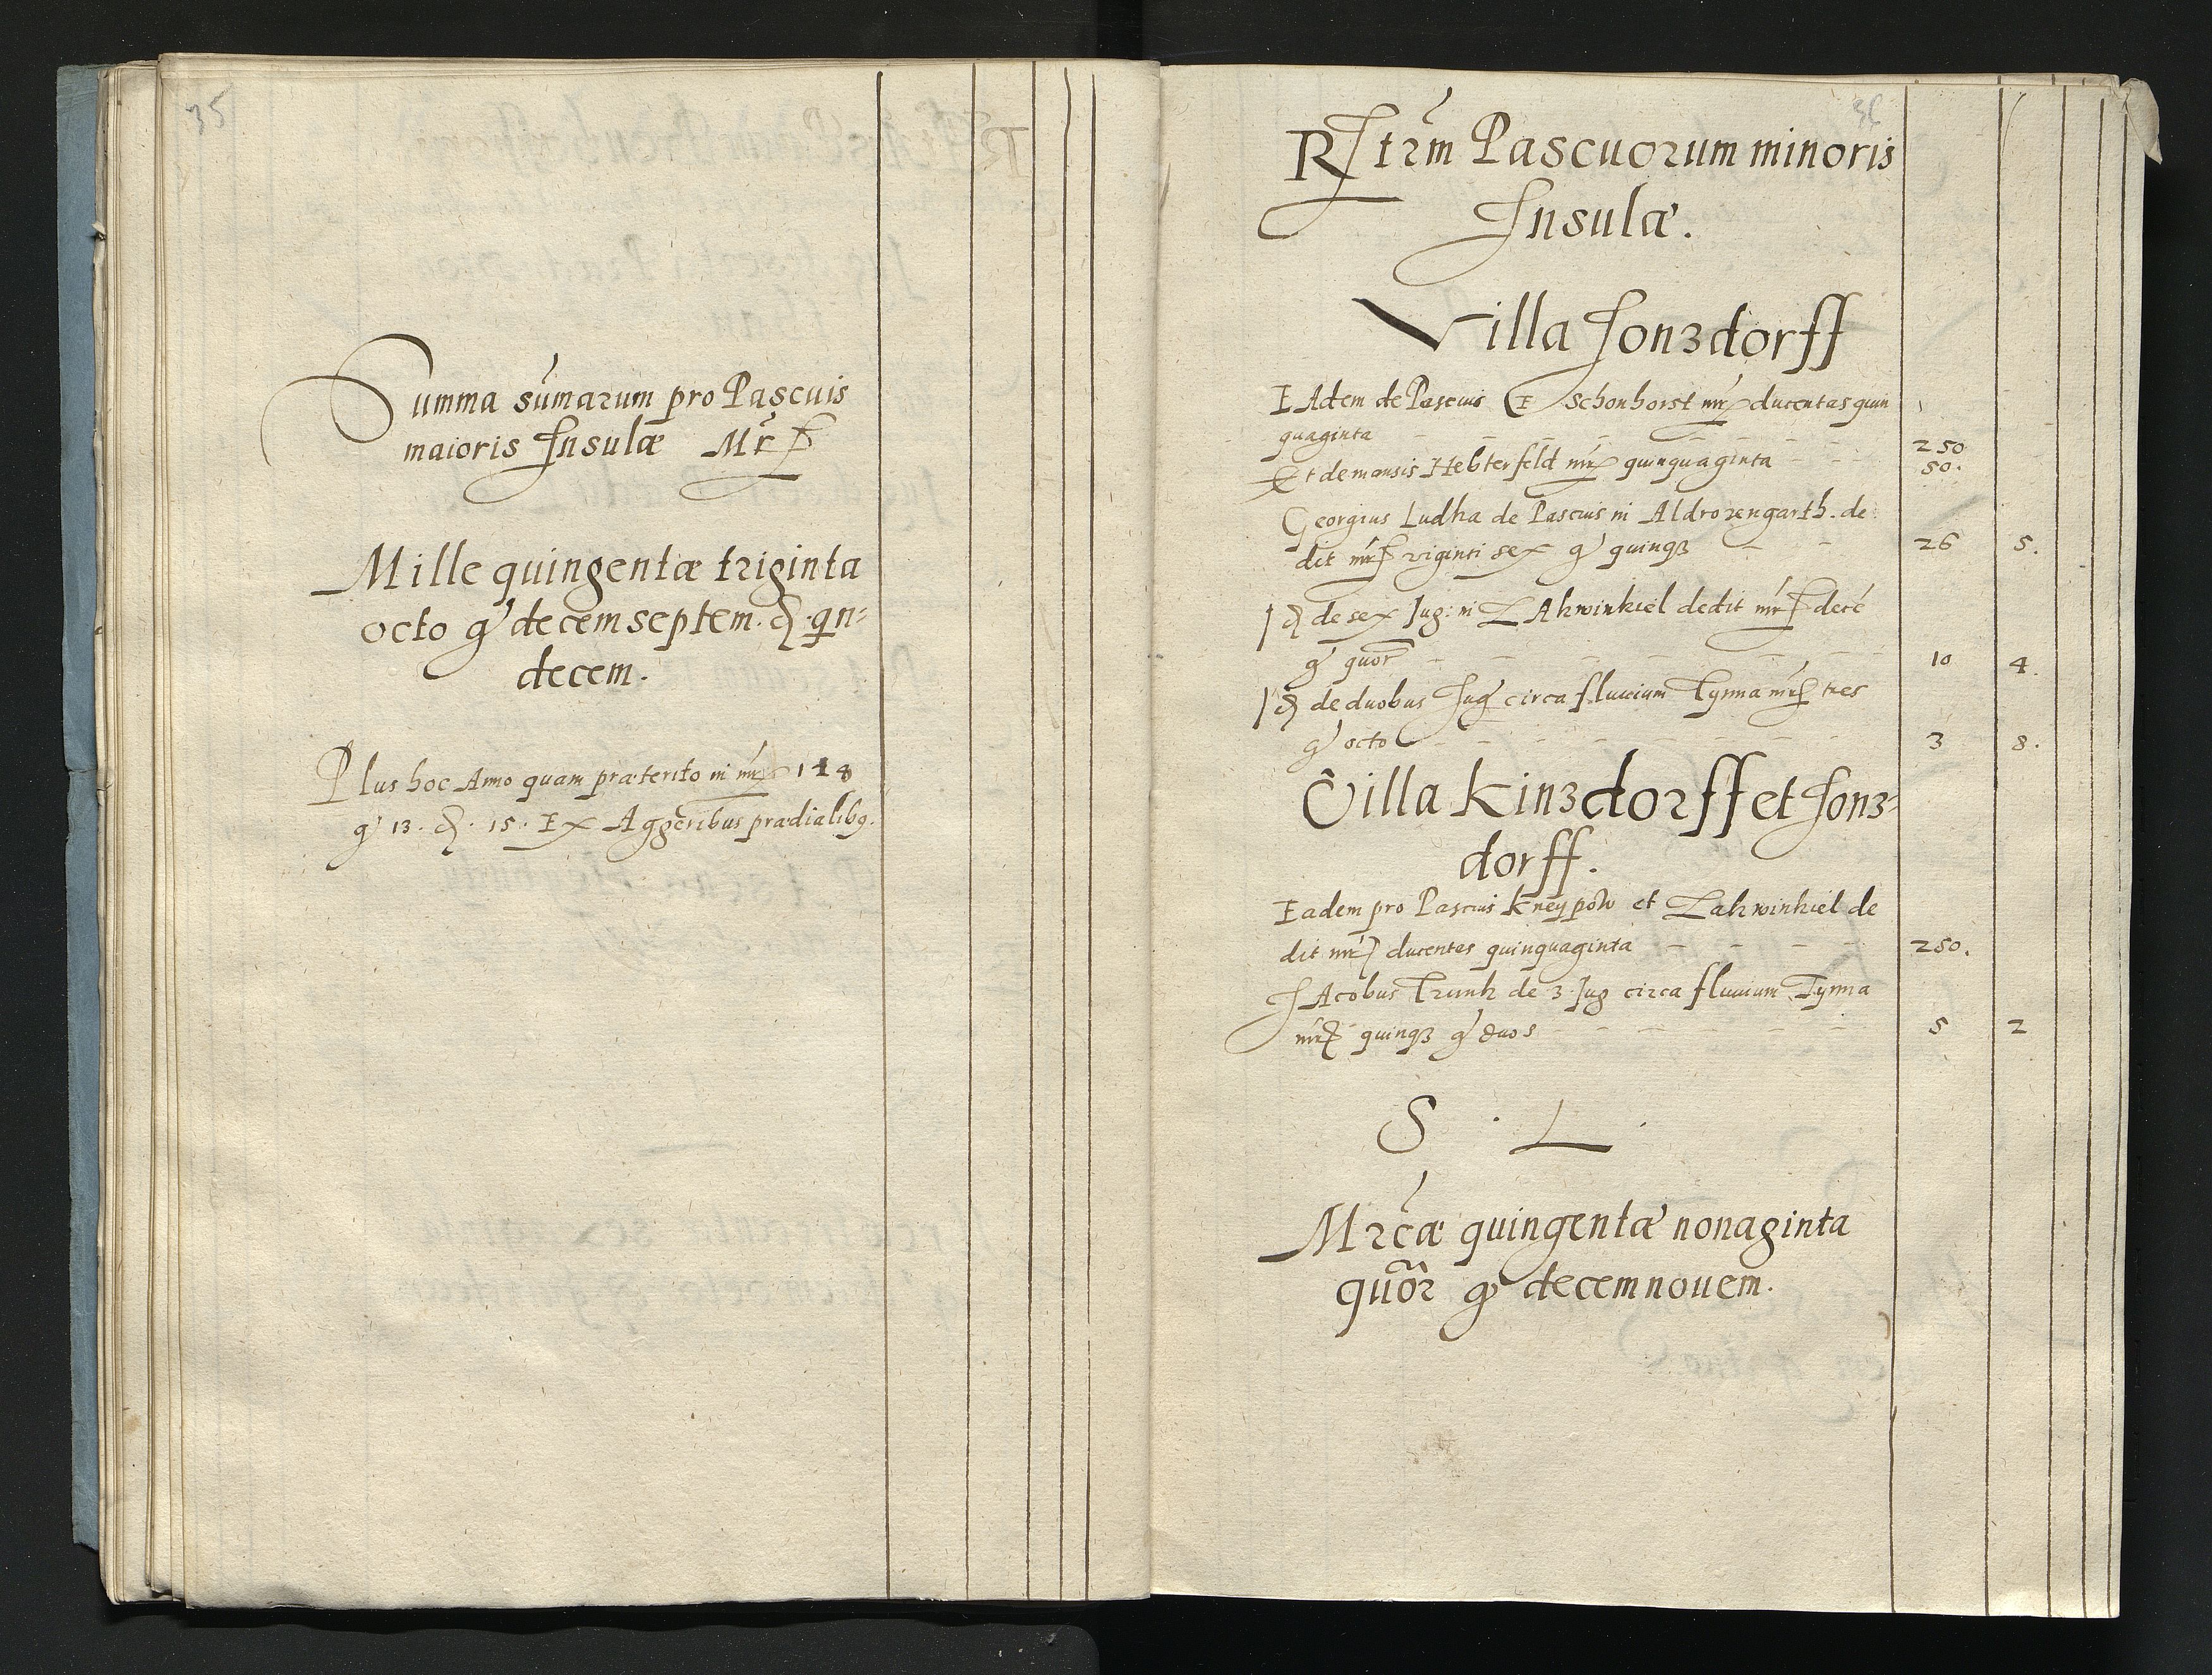 35
Summa sum̄arum pro Pascuis
maioris Insulæ Mr̄
Mille quingentæ triginta
octo g̉ decem septem. ₰. qn=
decem.
Plus hoc Anno quam præterito in mr̄ 148
g̉ 13. ₰. 15. Ex Aggeribus prædialibꝰ.
36
Rſtrm̄ Pascuorum minoris
Insulæ.
Villa Jonʒdorff
EAdem de Pascuis Schonhorst mr̄ ducentas quin
quaginta - - - - - - - 250
Et de mansis Hebterfeld mr̄ quinquaginta - - 50.
Georgius Ludka de Pascuis in Aldrozengarth. de
dit mr̄ viginti sex g̉ quinqꝫ - - 26 5.
Jd de sex Jug: in LAkwinkiel dedit mr̄ decē
g̉ quor̄ - - - - - - 10 4.
Jd de duobus Jug̉ circa fluuium Tynna mr̄ tres
g̉ octo - - - - - - - 3 8.
Villa Kinʒdorff et Jonʒ=
dorff.
Eadem pro Pascuis Kneypow et Lakwinkiel de
dit mr̄ ducentas quinquaginta - - - - 250.
JAcobus Trunk de 3 Jug circa fluuium Tynna
mr̄ quinqꝫ g̉ duos - - - - - 5 2
S . L .
Mrcæ quingentæ nonaginta
quōr g̉ decem nouem.